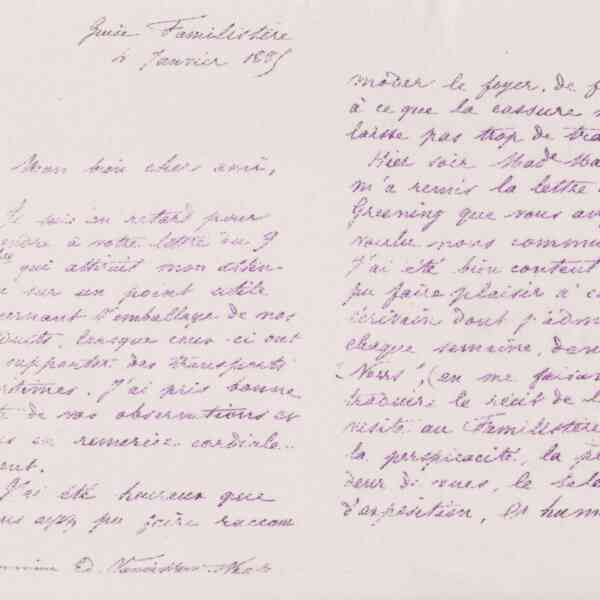 Guise Familistère
4 Janvier 1885
Mon bien chers ami,
Je suis en retard pour
pondre à votre lettre du 9
qui attirait mon atten-
sur un point utile
cernant l'emballage de nos
duits, lorsque ceux-ci ont
supporter des transports
ritimes. J'ai pris bonne
de vos observations et
us en remercie cordiale-
ment.
J'ai été heureux que
ous ayez pu faire raccom
Ed.
moder le foyer, de f
à ce que la cassure n
laisse pas trop de tra
Hier soir Made
m'a remis la lettre
Greening que vous av
voulu nous commu
J'ai été bien content
pu faire plaisir à c
écrivain dont j'adm
chaque semaine, dans
"News", (en me faisan
traduire le récit de l
visite au Familistère
la perspicacité, la p
deur de vues, le tale
d'exposition, et hum